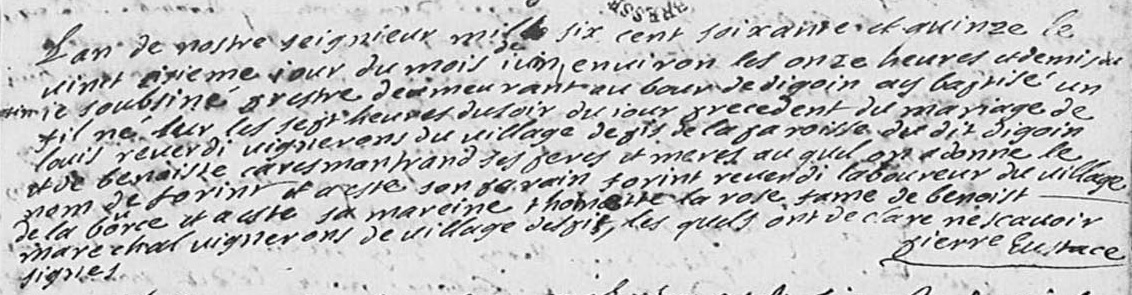 L'an de nostre seignieur mil six cent soixante et quinze le
vint sixieme jour du mois de iuin, environ les onze heures et demis du
matin ie soubsiné prestre demeurant au bour de digoin ay baptisé un
fil né sur les sept heures du soir du iour precedent du mariage de
louis reverdi vignerons du village de fis de la paroisse du dit digoin
et de benoiste caresmantrand ses peres et meres au quel on a donne le
nom de forint et a este son parain forint reverdi laboureur du village
de la bôrce et a este sa mareine thomette la rose fame de benoist
marechal vignerons de village desfis, les quels ont declare nescavoir
signes
pierre Eustace